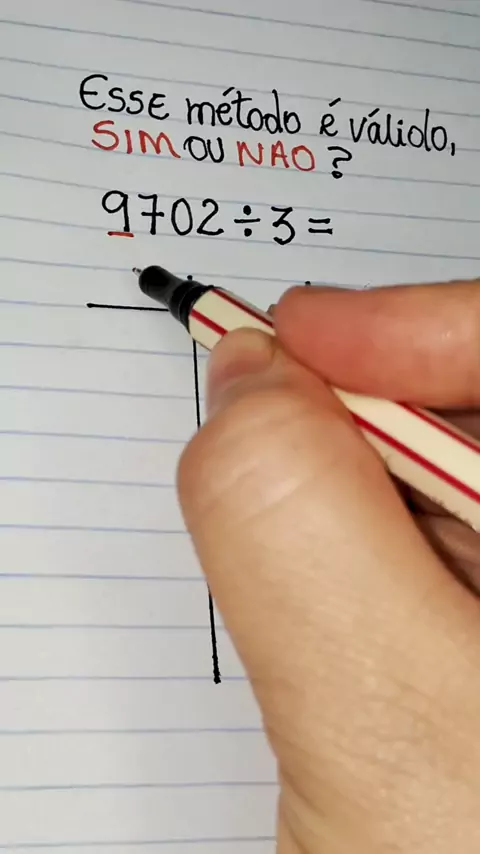 ESSE método é válido,
SIM OU NAO?
9702÷3=